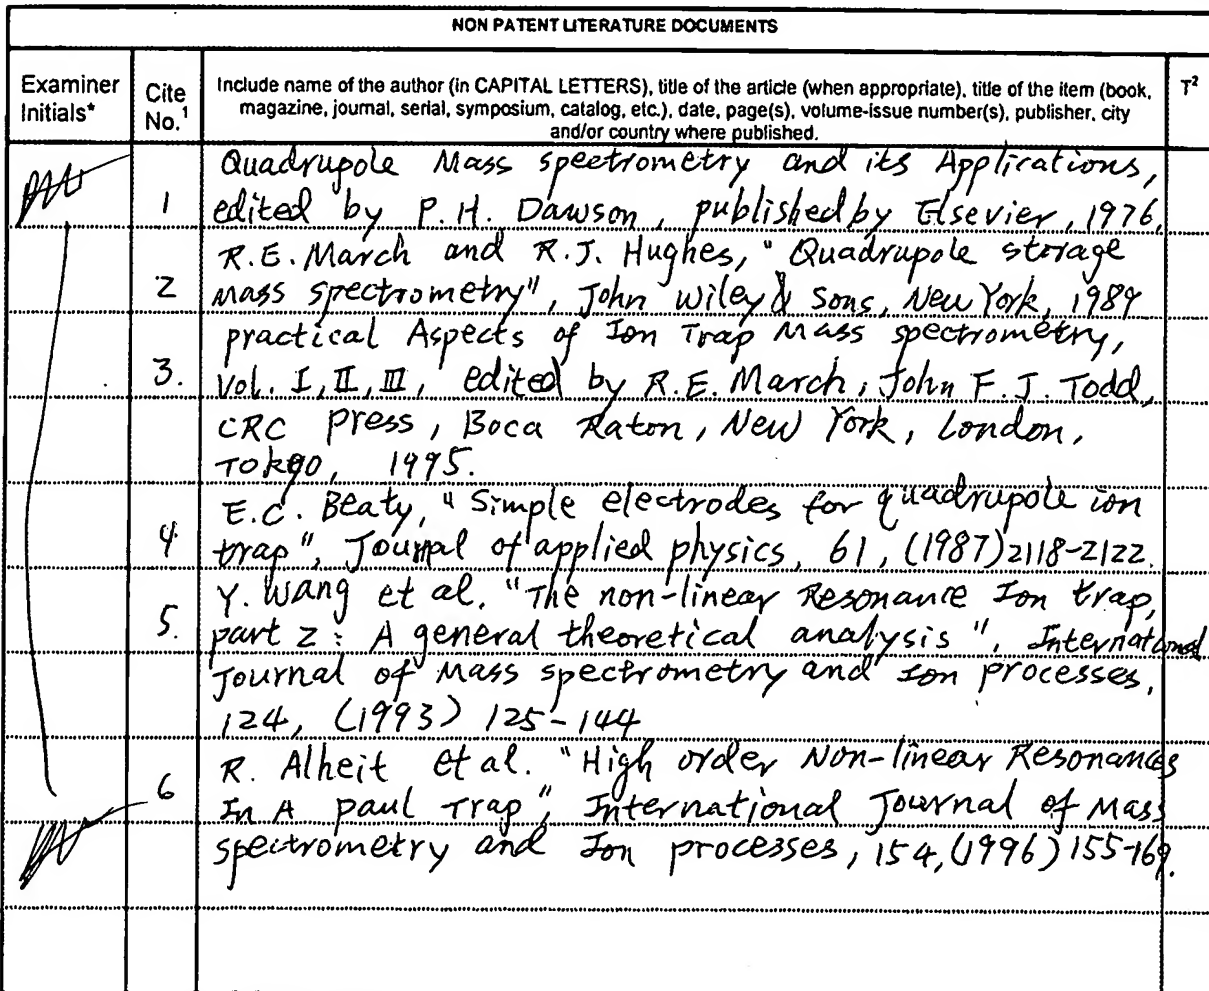 NON PATENT LITERATURE DOCUMENTS
Examiner Initials*
Cite No.1
Include name of the author (in CAPITAL LETTERS), title of the article (when appropriate), title of the item (book,
magazine, journal, serial, symposium, catalog, etc.), date, page(s), volume-issue number(s), publisher, city
and/or country where published.
T2
Quadrupole Mass spectrometry and its Applications,
1 edited by P.H. Dawson, published by Elsevier, 1976.
R.E. March and R.J. Hughes, "Quadrupole storage
2 Mass spectrometry", John Wiley & Sons, New York, 1989
practical Aspects of Ion Trap Mass spectrometry,
3. Vol. I, II, III, edited by R.E. March, John F.J. Todd,
CRC Press, Boca Raton, New York, London,
Tokyo, 1995.
E.C. Beaty, "Simple electrodes for quadrupole ion
4 trap", Journal of applied physics, 61, (1987) 2118-2122.
Y. Wang et al. "The non-linear Resonance Ion trap,
5. part 2: A general theoretical analysis", International
Journal of Mass spectrometry and Ion processes,
124, (1993) 125-144
R. Alheit et al. "High order Non-linear Resonances
6 In A paul Trap", International Journal of Mass
spectrometry and Ion processes, 154, (1996) 155-169.